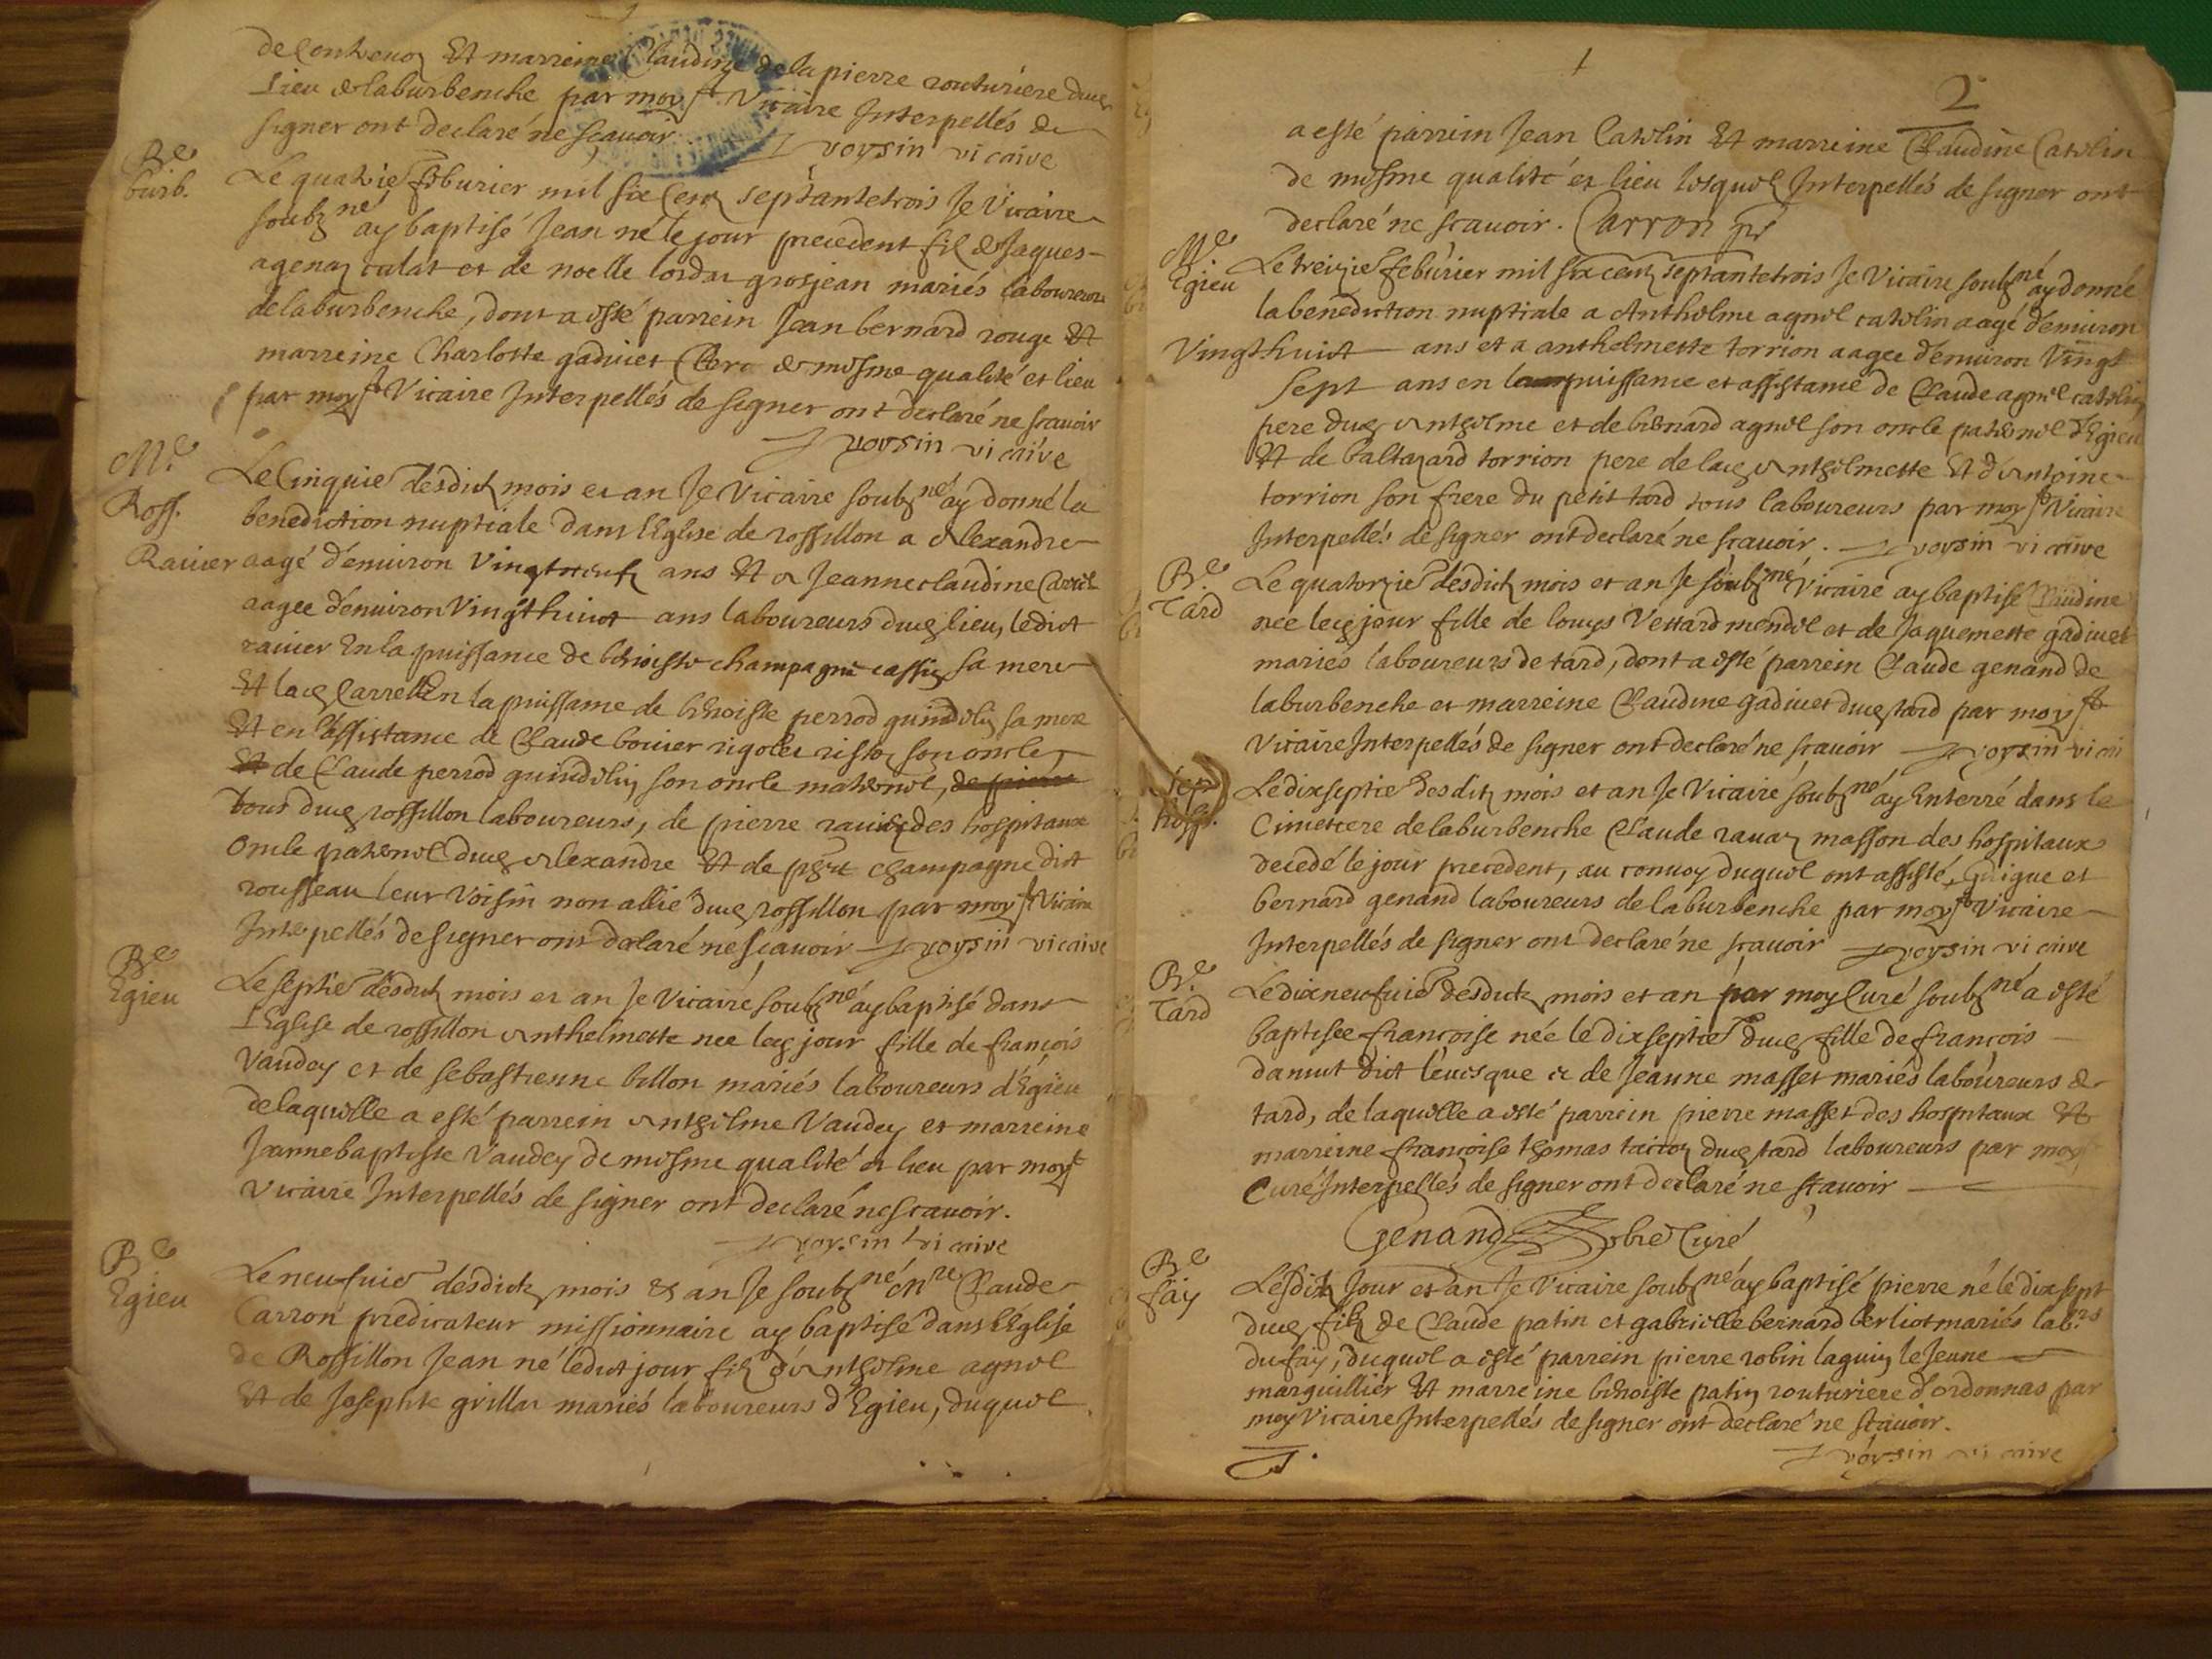 de Contrenoz Et marreine Claudine de la pierre routuriere dud
Lieu de laburbenche par moy st Vicaire Interpellés de
signer ont declaré ne scauoir voysin vicaire
Be
burb.
Le quatrie feburier mil six Cent septantetrois Je Vicaire
soubzné ay baptisé Jean né le jour precedent fil de Jaques
et de noelle grosjean mariés laboureurs
delaburbenche, dont a esté parrein Jean bernard rouge Et
marreine Charlotte gadiuet Clerc de mesme qualité et lieu
par moy st Vicaire Interpellés de signer ont declaré ne scauoir
voysin vicaire
Me
Ross.
Rauier
Le Cinquie desdictz mois et an Je Vicaire soubzné ay donné la
benediction nuptiale dans lEglise de rossillon a Alexandre
aagé d'enuiron Vingtneufz ans Et a Jeanneclaudine
aagee d'enuiron Vingthuict ans laboureurs dud lieu, ledict
rauier En la puissance de benoiste champagne sa mere
Et lad Carrel En la puissance de benoiste perrod guindolin sa mere
Et en l'assistance de Claude bouier rigolet son oncle
Et de Claude perrod guindolin son oncle maternel, de pierre
tous dud rossillon laboureurs, de pierre rauier des hospitaux
Oncle paternel dud Alexandre Et de champagne dict
rousseau leur Voisin non allié dud rossillon par moy st Vicaire
Interpellés de signer ont declaré ne scauoir voysin vicaire
Be
Egieu
Le septie desdictz mois et an Je Vicaire soubzné ay baptisé dans
lEglise de rossillon Anthelmette nee led jour fille de françois
Vaudey et de sebastienne billon mariés laboureurs d'Egieu
delaquelle a esté parrein Anthelme Vaudey et marreine
Jeannebaptiste Vaudey de mesme qualité et lieu par moy st
Vicaire Interpellés de signer ont declaré ne scauoir.
voysin vicaire
Be
Egieu
Le neufuie desdictz mois et an Je soubzné Mre Claude
Carron predicateur missionnaire ay baptisé dans lEglise
de Rossillon Jean né ledict jour filz d'Anthelme agnel
Et de Josephte grillat mariés laboureurs d'Egieu, duquel
2
a esté parrein Jean Catelin Et marreine Claudine Catelin
de mesme qualité et lieu lesquelz Interpellés de signer ont
declaré ne scauoir. Carron
Me
Egieu
Le treizie feburier mil six cent septantetrois Je Vicaire soubzné ay donné
la benediction nuptiale a Anthelme agnel catelin aagé d'enuiron
Vingthuict ans et a anthelmette torrion aagee d'enuiron Vingt
sept ans en puissance et assistance de Claude agnel catelin
pere dud Anthelme et de bernard agnel son oncle paternel d'Egieu
Et de baltazard torrion pere de lad Anthelmette Et d'Antoine
torrion son frere du petit tard tous laboureurs par moy st Vicaire
Interpellés de signer ont declaré ne scauoir. voysin vicaire
Be
Tard
Le quatorzie desdictz mois et an Je soubzné Vicaire ay baptisé Claudine
nee led jour fille de louys Vettard mendel et de Jaquemette gadiuet
mariés laboureurs de tard, dont a esté parrein Claude genand de
laburbenche et marreine Claudine gadiuet dud tard par moy st
Vicaire Interpellés de signer ont declaré ne scauoir voysin vicai
sep
hosp.
Le dixseptie desditz mois et an Je Vicaire soubzné ay Enterré dans le
Cimetiere delaburbenche Claude rauaz masson des hospitaux
decedé le jour precedent, au conuoy duquel ont assisté, Guigue et
bernard genand laboureurs de laburbenche par moy st Vicaire
Interpellés de signer ont declaré ne scauoir voysin vicaire
Be
Tard
Le dixneufuie desdictz mois et an par moy Curé soubzné a esté
baptisee françoise née le dixseptie dud fille de françois
daniut dict leuesque et de Jeanne masset mariés laboureurs de
tard, de laquelle a esté parrein pierre masset des hospitaux Et
marreine françoise thomas dud tard laboureurs par moy
Curé Interpellés de signer ont declaré ne scauoir
Genand pbre Curé
Be
fay
Lesditz Jour et an Je Vicaire soubzné ay baptisé pierre né le dixsept
dud filz de Claude patin et gabrielle bernard berliot mariés labrs
du fay, duquel a esté parrein pierre robin laguin le Jeune
marguillier Et marreine benoiste patin routuriere d'ordonnas par
moy Vicaire Interpellés de signer ont declaré ne scauoir.
voysin vicaire